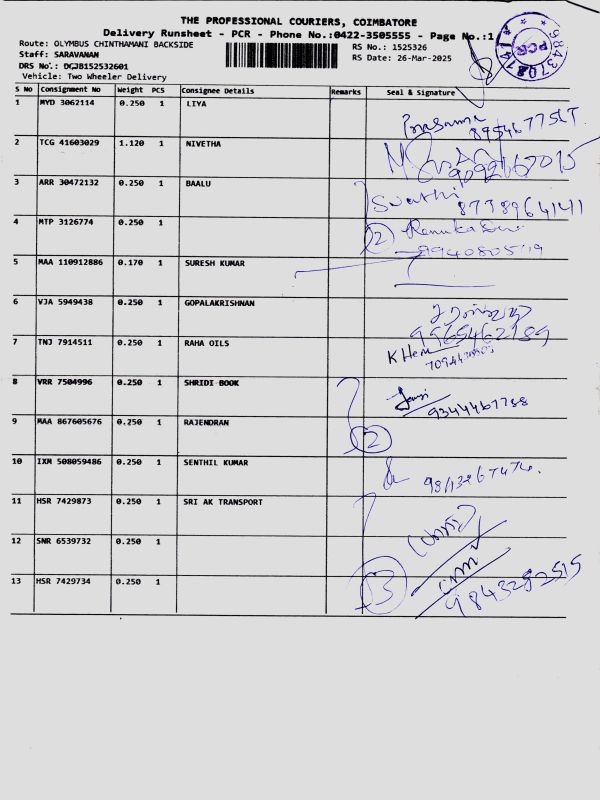 THE PROFESSIONAL COURIERS, COIMBATORE
Delivery Runsheet - PCR - Phone No.:0422-3505555 - Page No.:1
Route: OLYMBUS CHINTHAMANI BACKSIDE
Staff: SARAVANAN
DRS No.: DCJB152532601
Vehicle: Two Wheeler Delivery
RS No.: 1525326
RS Date: 26-Mar-2025
PCR
S No Consignment No Weight PCS Consignee Details Remarks Seal & Signature
1 MYD 3062114 0.250 1 LIYA Prasanna
2 TCG 41603029 1.120 1 NIVETHA 9092167015
3 ARR 30472132 0.250 1 BAALU Swathi 8778964141
4 MTP 3126774 0.250 1 2
5 MAA 110912886 0.170 1 SURESH KUMAR
6 VJA 5949438 0.250 1 GOPALAKRISHNAN
7 TNJ 7914511 0.250 1 RAHA OILS K Hem
8 VRR 7504996 0.250 1 SHRIDI BOOK 9344467788
9 MAA 867605676 0.250 1 RAJENDRAN 2
10 IXM 508059486 0.250 1 SENTHIL KUMAR
11 HSR 7429873 0.250 1 SRI AK TRANSPORT
12 SNR 6539732 0.250 1
13 HSR 7429734 0.250 1 3 9843252515